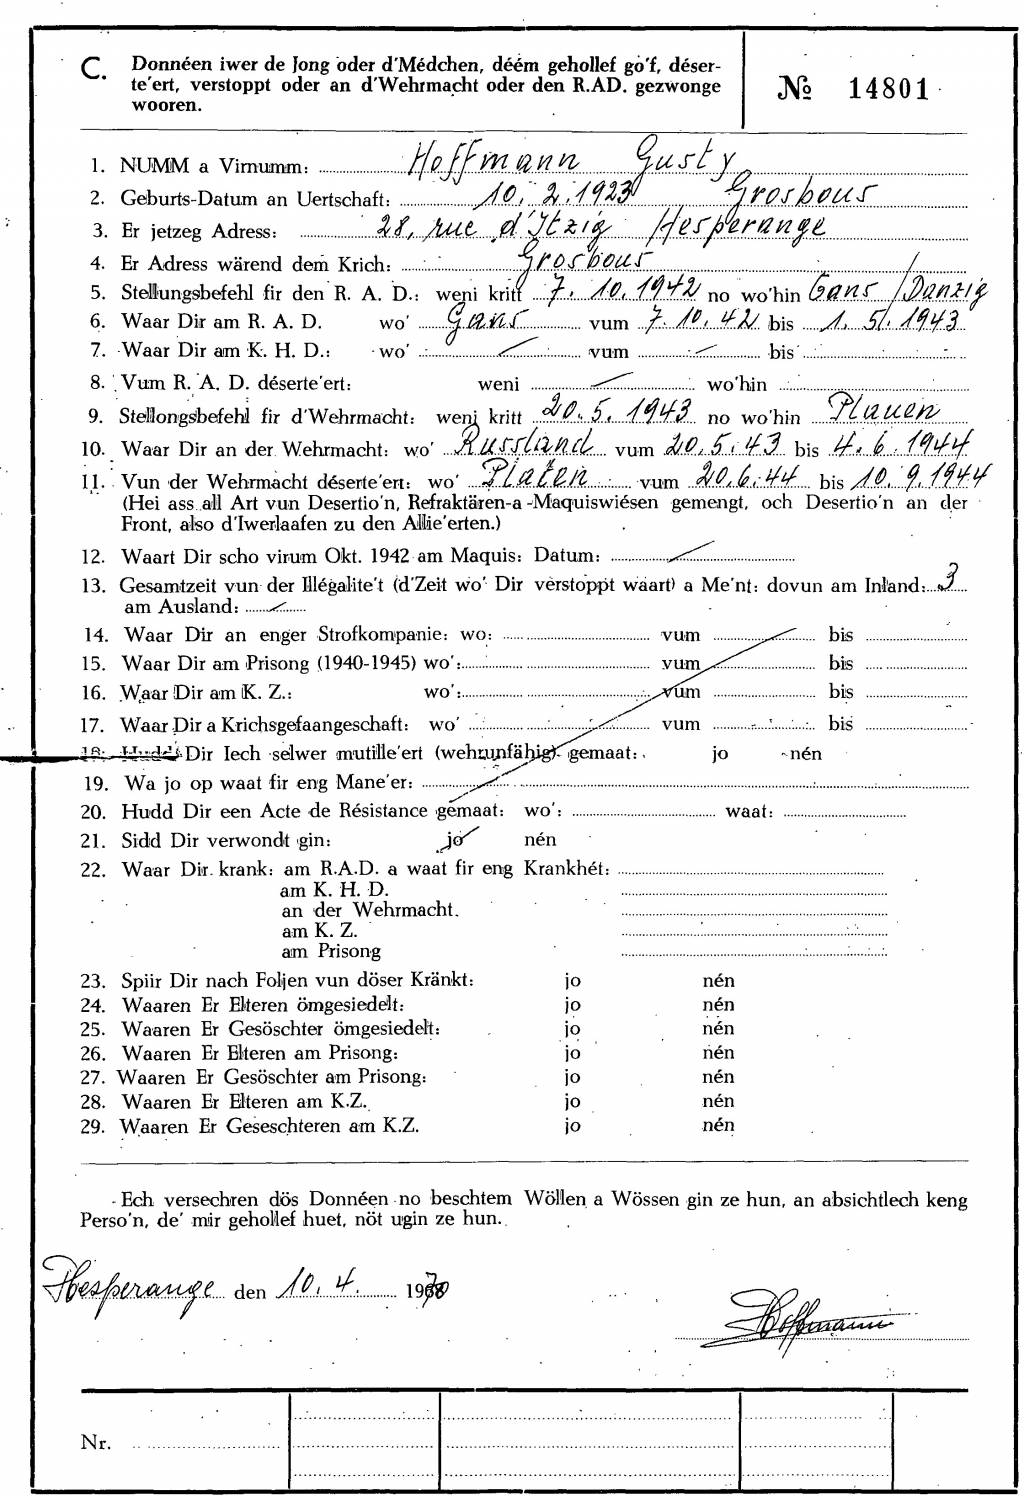 C. Donnéen iwer de Jong oder d'Médchen, déém gehollef go'f, déser-
te'ert, verstoppt oder an d'Wehrmacht oder den R.AD. gezwonge
wooren.
№ 14801
1. NUMM a Virnumm: Hoffmann Gusty
2. Geburts-Datum an Uertschaft: 10. 2. 1923 Grosbous
3. Er jetzeg Adress: 28, rue d'Itzig Hesperange
4. Er Adress wärend dem Krich: Grosbous
5. Stellungsbefehl fir den R. A. D.: weni kritt 7. 10. 1942 no wo'hin Gans / Danzig
6. Waar Dir am R. A. D. wo' Gans vum 7. 10. 42 bis 1. 5. 1943
7. Waar Dir am K. H. D.: wo' vum bis
8. Vum R. A. D. déserte'ert: weni wo'hin
9. Stellongsbefehl fir d'Wehrmacht: weni kritt 20. 5. 1943 no wo'hin Plauen
10. Waar Dir an der Wehrmacht: wo' Russland vum 20. 5. 43 bis 4. 6. 1944
11. Vun der Wehrmacht déserte'ert: wo' Platen vum 20. 6. 44 bis 10. 9. 1944
(Hei ass all Art vun Desertio'n, Refraktären-a-Maquiswiésen gemengt, och Desertio'n an der
Front, also d'Iwerlaafen zu den Allie'erten.)
12. Waart Dir scho virum Okt. 1942 am Maquis: Datum:
13. Gesamtzeit vun der Illégalite't (d'Zeit wo' Dir verstoppt waart) a Me'nt: dovun am Inland: 3
am Ausland:
14. Waar Dir an enger Strofkompanie: wo: vum bis
15. Waar Dir am Prisong (1940-1945) wo': vum bis
16. Waar Dir am K. Z.: wo': vum bis
17. Waar Dir a Krichsgefaangeschaft: wo' vum bis
18. Hudd Dir Iech selwer mutille'ert (wehrunfähig) gemaat: jo nén
19. Wa jo op waat fir eng Mane'er:
20. Hudd Dir een Acte de Résistance gemaat: wo': waat:
21. Sidd Dir verwondt gin: jo nén
22. Waar Dir krank: am R.A.D. a waat fir eng Krankhét:
am K. H. D.
an der Wehrmacht.
am K. Z.
am Prisong
23. Spiir Dir nach Foljen vun döser Kränkt: jo nén
24. Waaren Er Elteren ömgesiedelt: jo nén
25. Waaren Er Gesöschter ömgesiedelt: jo nén
26. Waaren Er Elteren am Prisong: jo nén
27. Waaren Er Gesöschter am Prisong: jo nén
28. Waaren Er Elteren am K.Z. jo nén
29. Waaren Er Geseschteren am K.Z. jo nén
Ech versechren dös Donnéen no beschtem Wöllen a Wössen gin ze hun, an absichtlech keng
Perso'n, de' mir gehollef huet, nöt ugin ze hun.
Hesperange den 10. 4. 1970
Hoffmann
Nr.